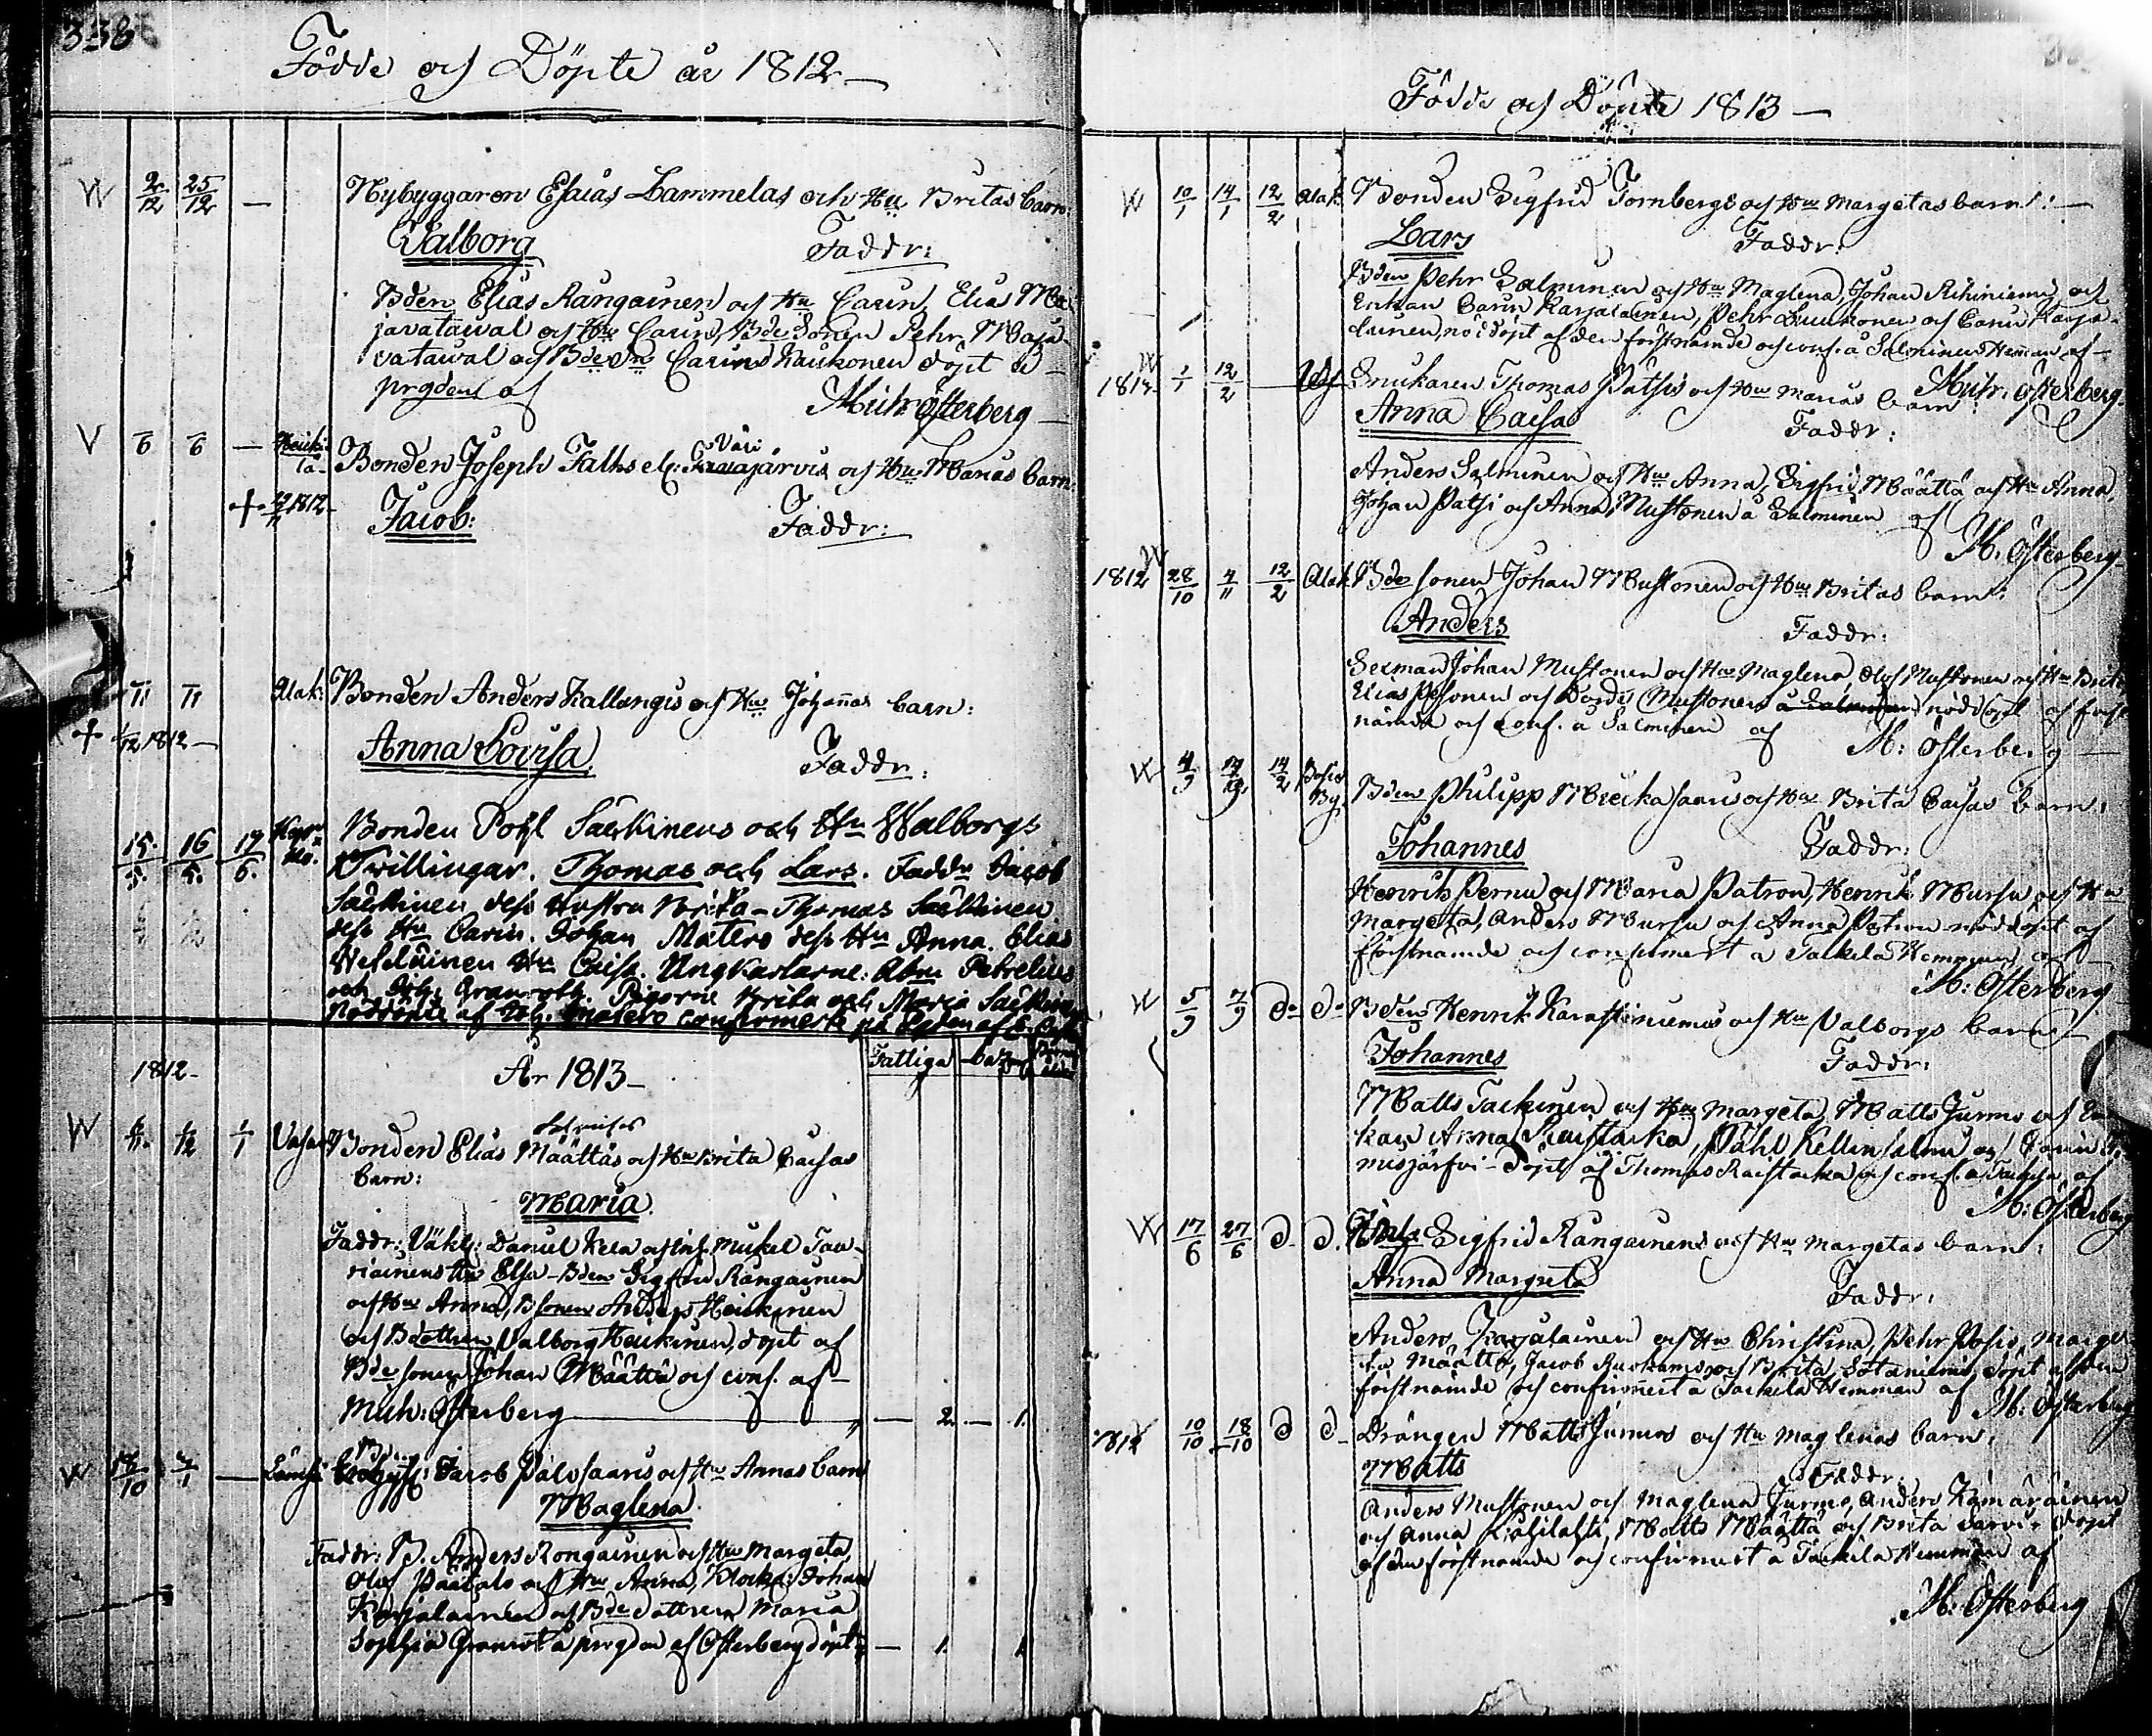 338
Födde och Döpte år 1812
2/12 25/12 — Nybyggaren Esaias Lammelas och Hu Britas barn
Valborg Faddr:
Bden Elias Kangainen och Hu Carin, Elias Ma
javatawal och Hu Carin, Bde Sonen Pehr Maja
vatawal och Bde Carin Haukonen döpt i
prgden af
Mich: Österberg
6 6 — Bonden Joseph Falks el: Väri järvis och Hu Marias barn
+ 1812 Jacob: Faddr:
11 11 Alak: Bonden Anders Kallungis och Hu Johannas barn:
+ /12 1812 — Anna Lovisa Faddr:
15/5. 16/5. 17/6. Bonden Pohl Säkkinens och Hu Walborgs
Tvillingar. Thomas och Lars. Faddr Jacob
Säkkinen dess Hustru Brita — Thomas Säkkinen
dess Hu Carin. Johan Matero dess Hu Anna. Elias
Hu Caisa. Ungkarlarne: Abm Petrelius
och Joh: Granroth. Pigorne Brita och Maria Säkkinen
Nöddöpte af Joh. Matero confirmerte på
Fattiga
1812 År 1813
Bonden Elias Määttäs och Hu Brita Caisas
barn:
Maria
Faddr: Daniel Kela och Michel Tau-
riainens Hu Elsa — Bden Sigfrid Kangainen
och Hu Anna, B sonen Anders Heikinen
och B dottren Valborg Heikinen, döpt af
Bde sonen Johan Määttä och conf. af
Mich: Österberg — 2 — 1.
18/10 /1 — Jacob Palosaaris och Hu Annas barn
Maglena
Faddr: B. Anders Kongainen och Hu Margeta,
Olof Päätalo och Hu Anna, Johan
Karjalainen och Bde dottren Maria
Sophia Granrot å prgden af Österberg döpt — 1. 1
Födde och Döpte 1813
10/1 14/1 12/2 Alak: Bonden Sigfrid Tornbergs och Hu Margetas barn:
Lars Faddr:
Bden Pehr Salminen och Hu Maglena, Johan Riihiniemi och
Enkan Carin Karjalainen, Pehr Luukonen och Carin Karja-
lainen, nöddöpt af den förstnämde och conf. å Salminen Heman af
Mich: Österberg
1/1 12/2 Snickaren Thomas Patsis och Hu Marias barn:
Anna Caisa Faddr:
Anders Salminen och Hu Anna, Sigfrid Määttä och Hu Anna,
Johan Patsi och Anna Mustonen å Salminen af
M. Österberg
1812 28/10 4/11 12/2 Alak: Bde sonen Johan Mustonens och Hu Britas barn:
Anders Faddr:
Sexman Johan Mustonen och Hu Maglena, Olof Mustonen och Hu Brita
Elias Pesonen och Mustonen å Salminen nöddöpt af först
nämde och conf. å Salminen af M: Österberg
4/9 14/2 Posio By Bden Philipp Murikasaaris och Hu Brita Caisas barn:
Johannes Faddr:
Henrik Pernu och Maria Patron, Henrik Mursu och Hu
Margeta, Anders Mursu och Anna Patron nöddöpt af
förstnämde och confirmert å Tackela Hemman af
M: Österberg
5/9 7/9 do do Bden Henrik Karastiniemis och Hu Valborgs barn
Johannes Faddr:
Matts Tackinen och Hu Margeta, Matts Jurmo och
Anna Raistacka, Påhl Kellinsalmi och Carin
misjärfvi — döpt af Thomas Raistacka och conf. å Tackela af
M: Österberg
17/6 27/6 d. d. Sigfrid Kangainens och Hu Margetas barn:
Anna Margreta Faddr:
Anders Karjalainen och Hu Christina, Pehr Posio, Marge-
ta Määttä, Jacob och Brita Sotaniemi, döpt af den
förstnämde och confirmert å Tackela Hemman af
M: Österberg
1812 10/10 18/10 d d Drängen Matts Jurmos och Hu Maglenas barn:
Matts Faddr:
Anders Mustonen och Maglena Jurmo, Anders Kämäräinen
och Anna, Matts Määttä och Brita döpt
af den förstnämde och confirmert å Tackela Hemman af
M: Österberg